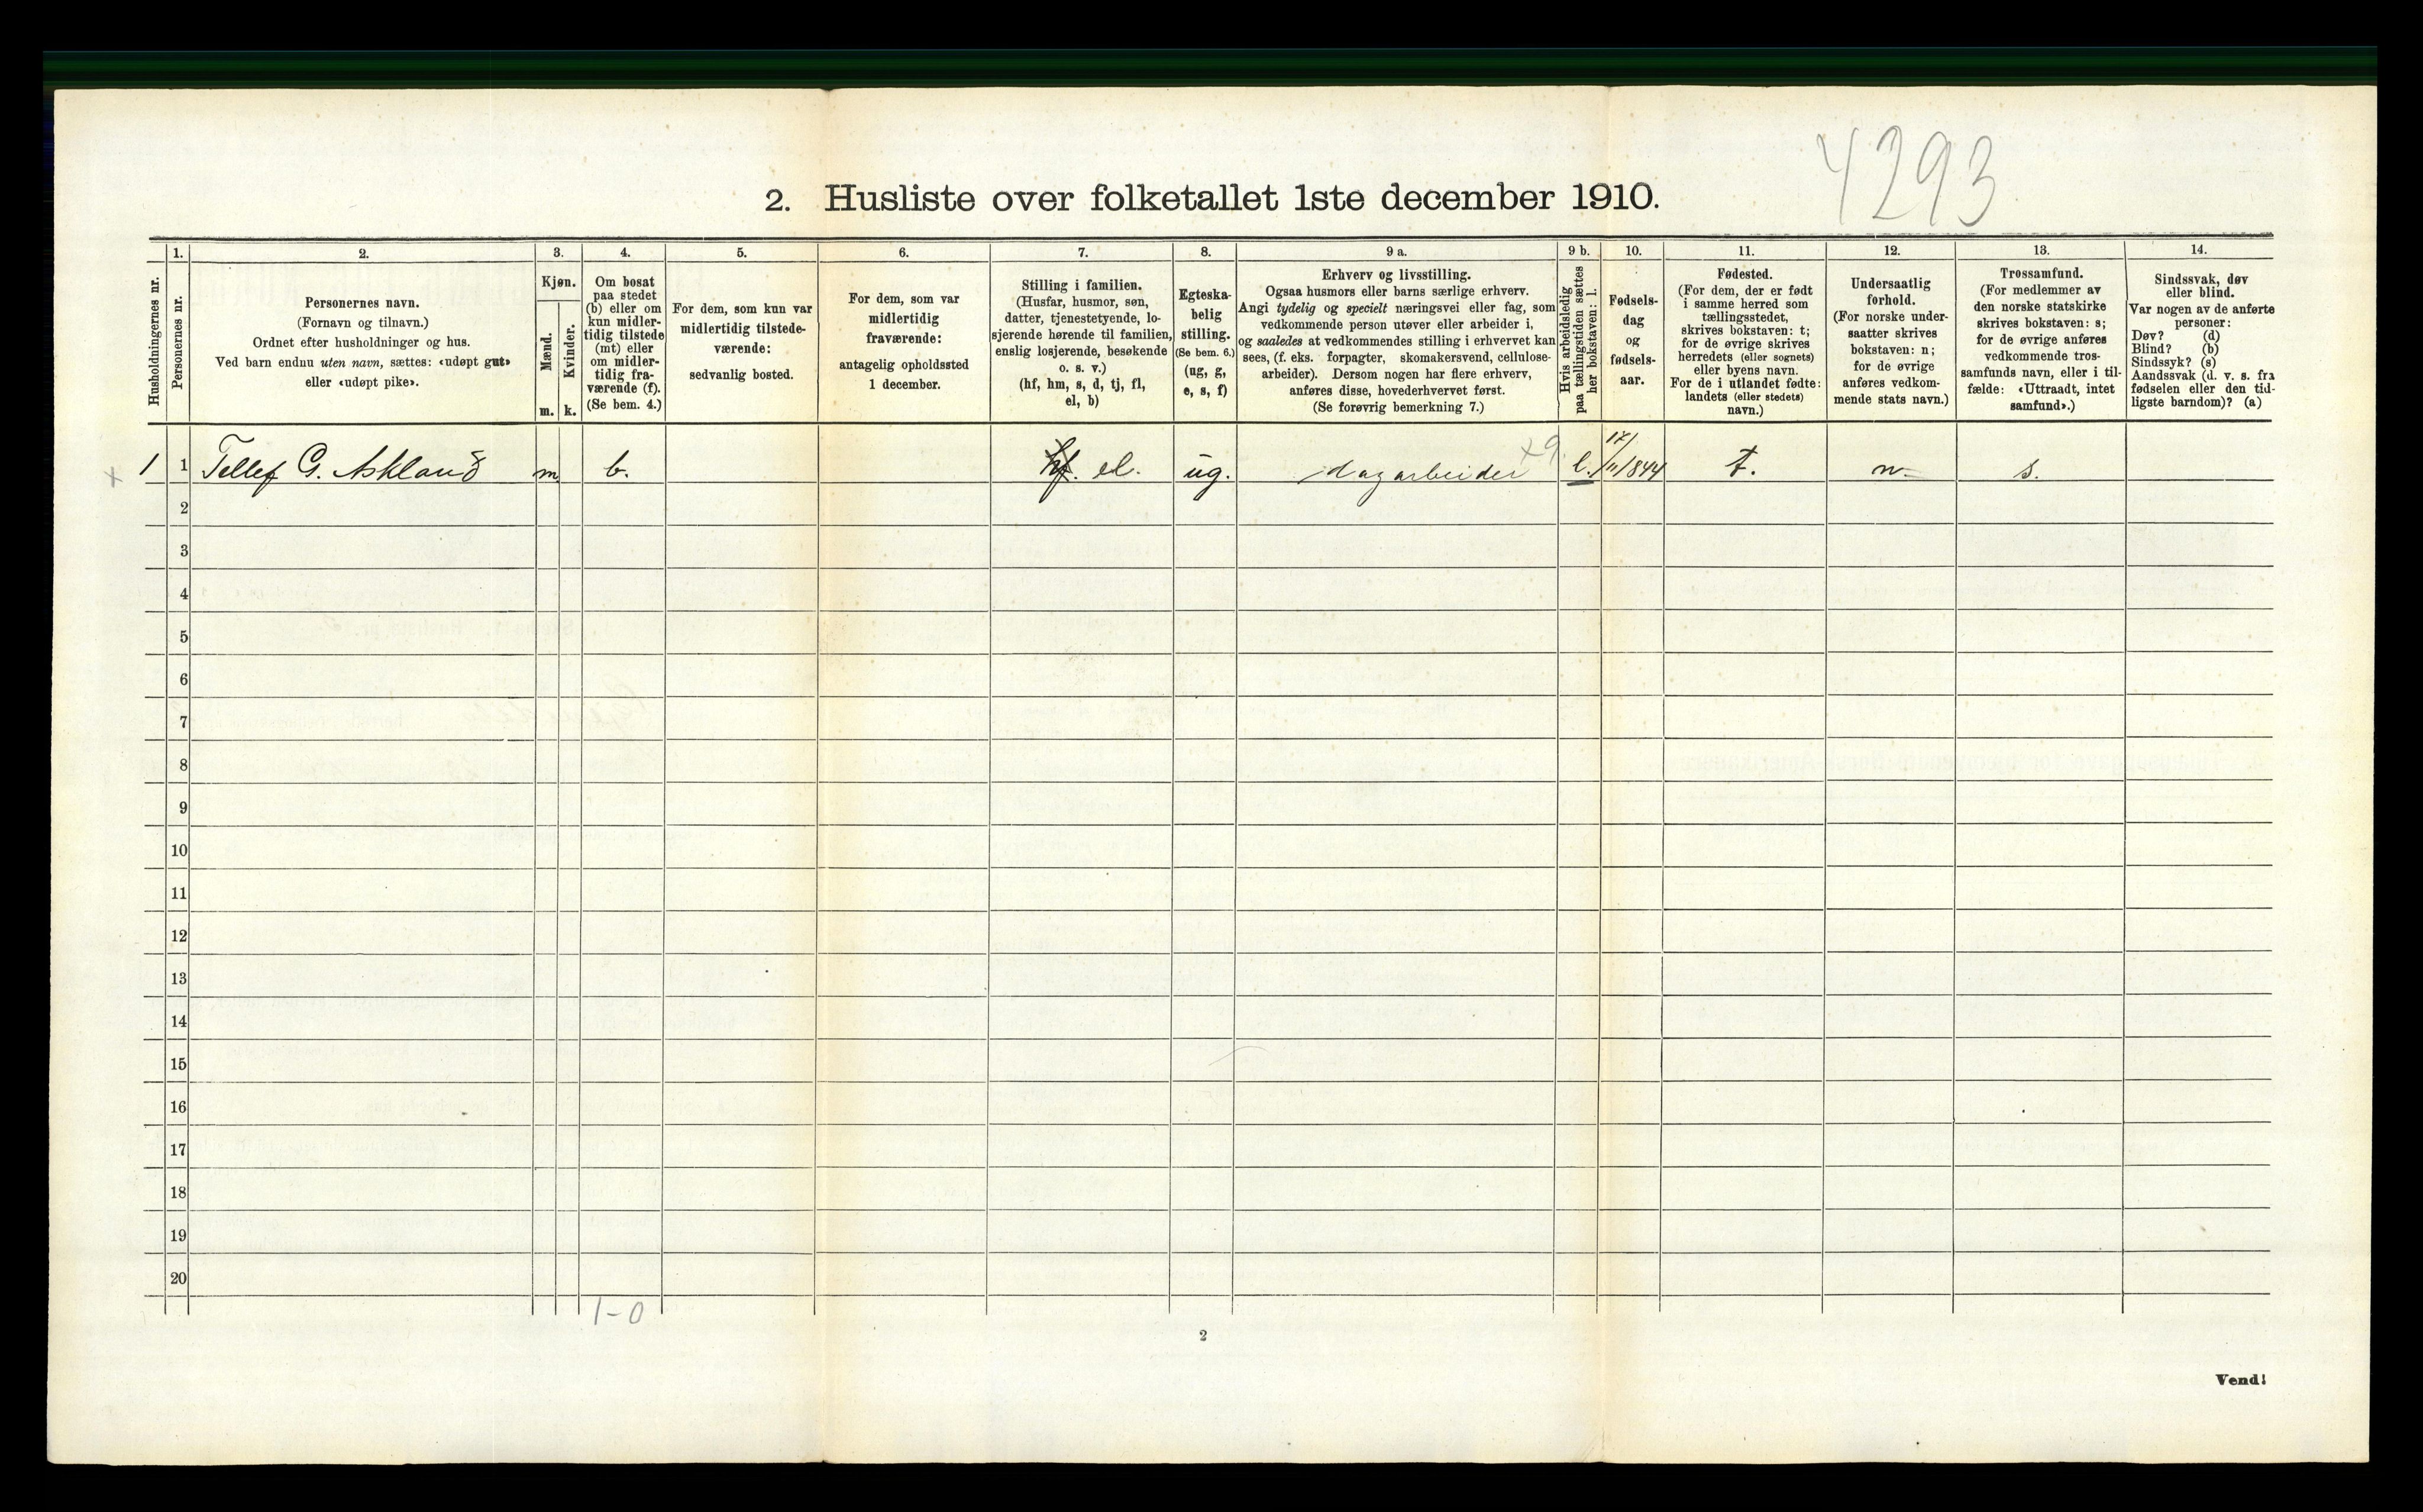 4293
2. Husliste over folketallet 1ste december 1910.
Husholdningernes nr.
1.
Personernes nr.
2.
Personernes navn.
(Fornavn og tilnavn.)
Ordnet efter husholdninger og hus.
Ved barn endnu uten navn, sættes: «udøpt gut»
eller «udøpt pike».
3.
Kjøn.
Mænd.
Kvinder.
m. k.
4.
Om bosat
paa stedet
(b) eller om
kun midler-
tidig tilstede
(mt) eller
om midler-
tidig fra-
værende (f).
(Se bem. 4.)
5.
For dem, som kun var
midlertidig tilstede-
værende:
sedvanlig bosted.
6.
For dem, som var
midlertidig
fraværende:
antagelig opholdssted
1 december.
7.
Stilling i familien.
(Husfar, husmor, søn,
datter, tjenestetyende, lo-
sjerende hørende til familien,
enslig losjerende, besøkende
o. s. v.)
(hf, hm, s, d, tj, fl,
el, b)
8.
Egteska-
belig
stilling.
(Se bem. 6.)
(ug, g,
e, s, f)
9 a.
Erhverv og livsstilling.
Ogsaa husmors eller barns særlige erhverv.
Angi tydelig og specielt næringsvei eller fag, som
vedkommende person utøver eller arbeider i,
og saaledes at vedkommendes stilling i erhvervet kan
sees, (f. eks. forpagter, skomakersvend, cellulose-
arbeider). Dersom nogen har flere erhverv,
anføres disse, hovederhvervet først.
(Se forøvrig bemerkning 7.)
9 b.
Hvis arbeidsledig
paa tællingstiden sættes
her bokstaven: l.
10.
Fødsels-
dag
og
fødsels-
aar.
11.
Fødested.
(For dem, der er født
i samme herred som
tællingsstedet,
skrives bokstaven: t;
for de øvrige skrives
herredets (eller sognets)
eller byens navn.
For de i utlandet fødte:
landets (eller stedets)
navn.)
12.
Undersaatlig
forhold.
(For norske under-
saatter skrives
bokstaven: n;
for de øvrige
anføres vedkom-
mende stats navn.)
13.
Trossamfund.
(For medlemmer av
den norske statskirke
skrives bokstaven: s;
for de øvrige anføres
vedkommende tros-
samfunds navn, eller i til-
fælde: «Uttraadt, intet
samfund».)
14.
Sindssvak, døv
eller blind.
Var nogen av de anførte
personer:
Døv? (d)
Blind? (b)
Sindssyk? (s)
Aandssvak (d. v. s. fra
fødselen eller den tid-
ligste barndom)? (a)
x 1 1 Tellef G. Askland m b. hf. el. ug. dagarbeider x9. l. 17/11 1844 t. n s.
2
3
4
5
6
7
8
9
10
11
12
13
14
15
16
17
18
19
20
1-0
2
Vend!